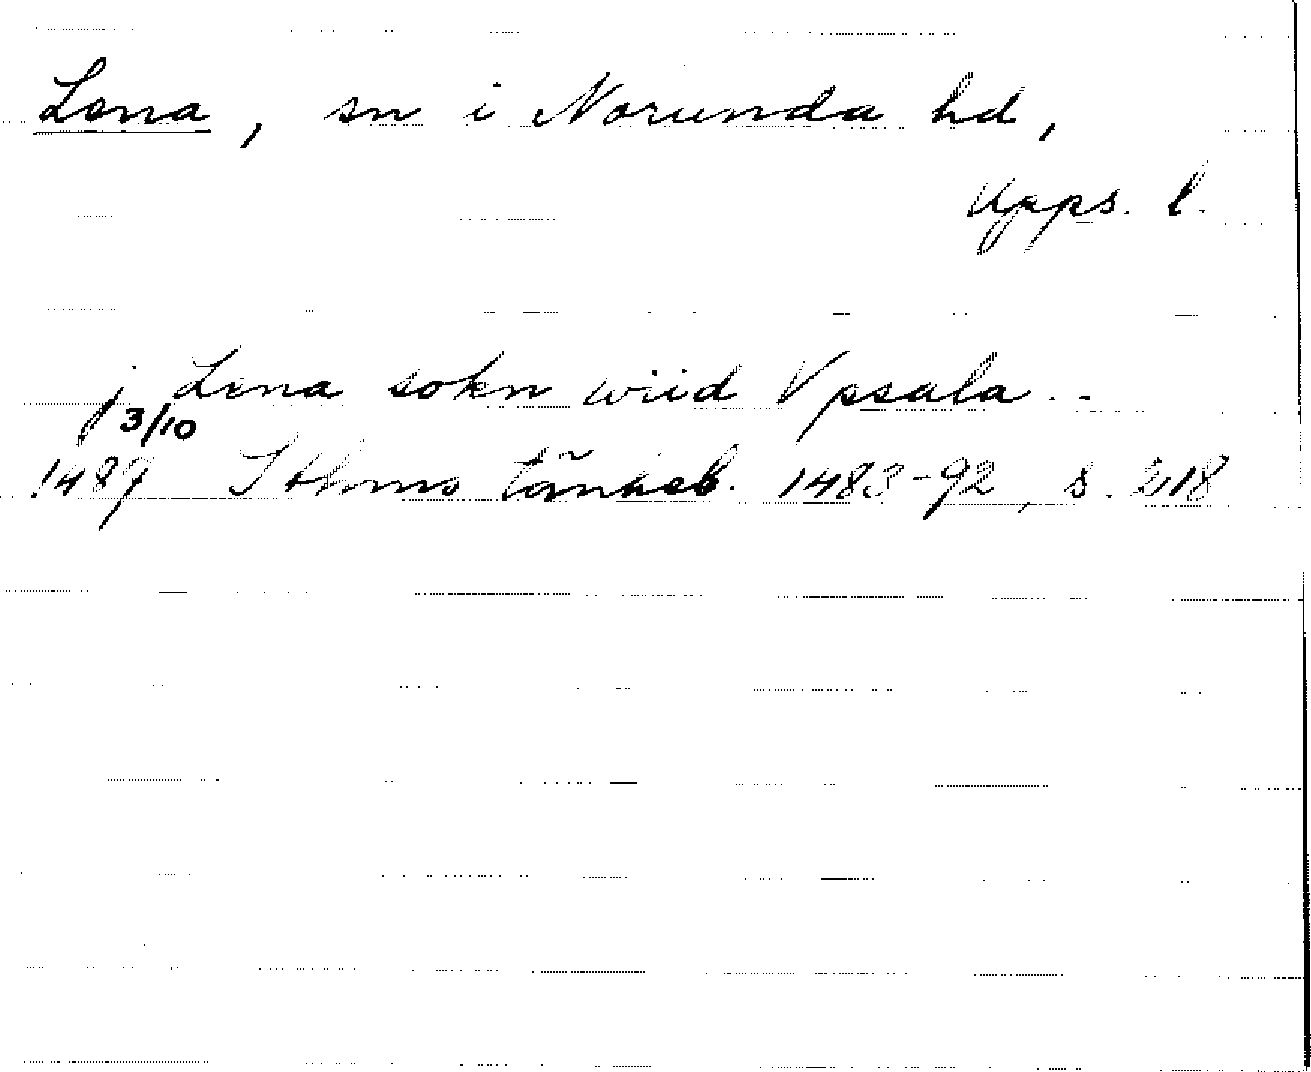 Lena, sn i Norunda hd,
Upps. l.
j Lena sokn wiid Vpsala ..
3/10
1487 Sthms tänkeb. 1483-92, s. 218